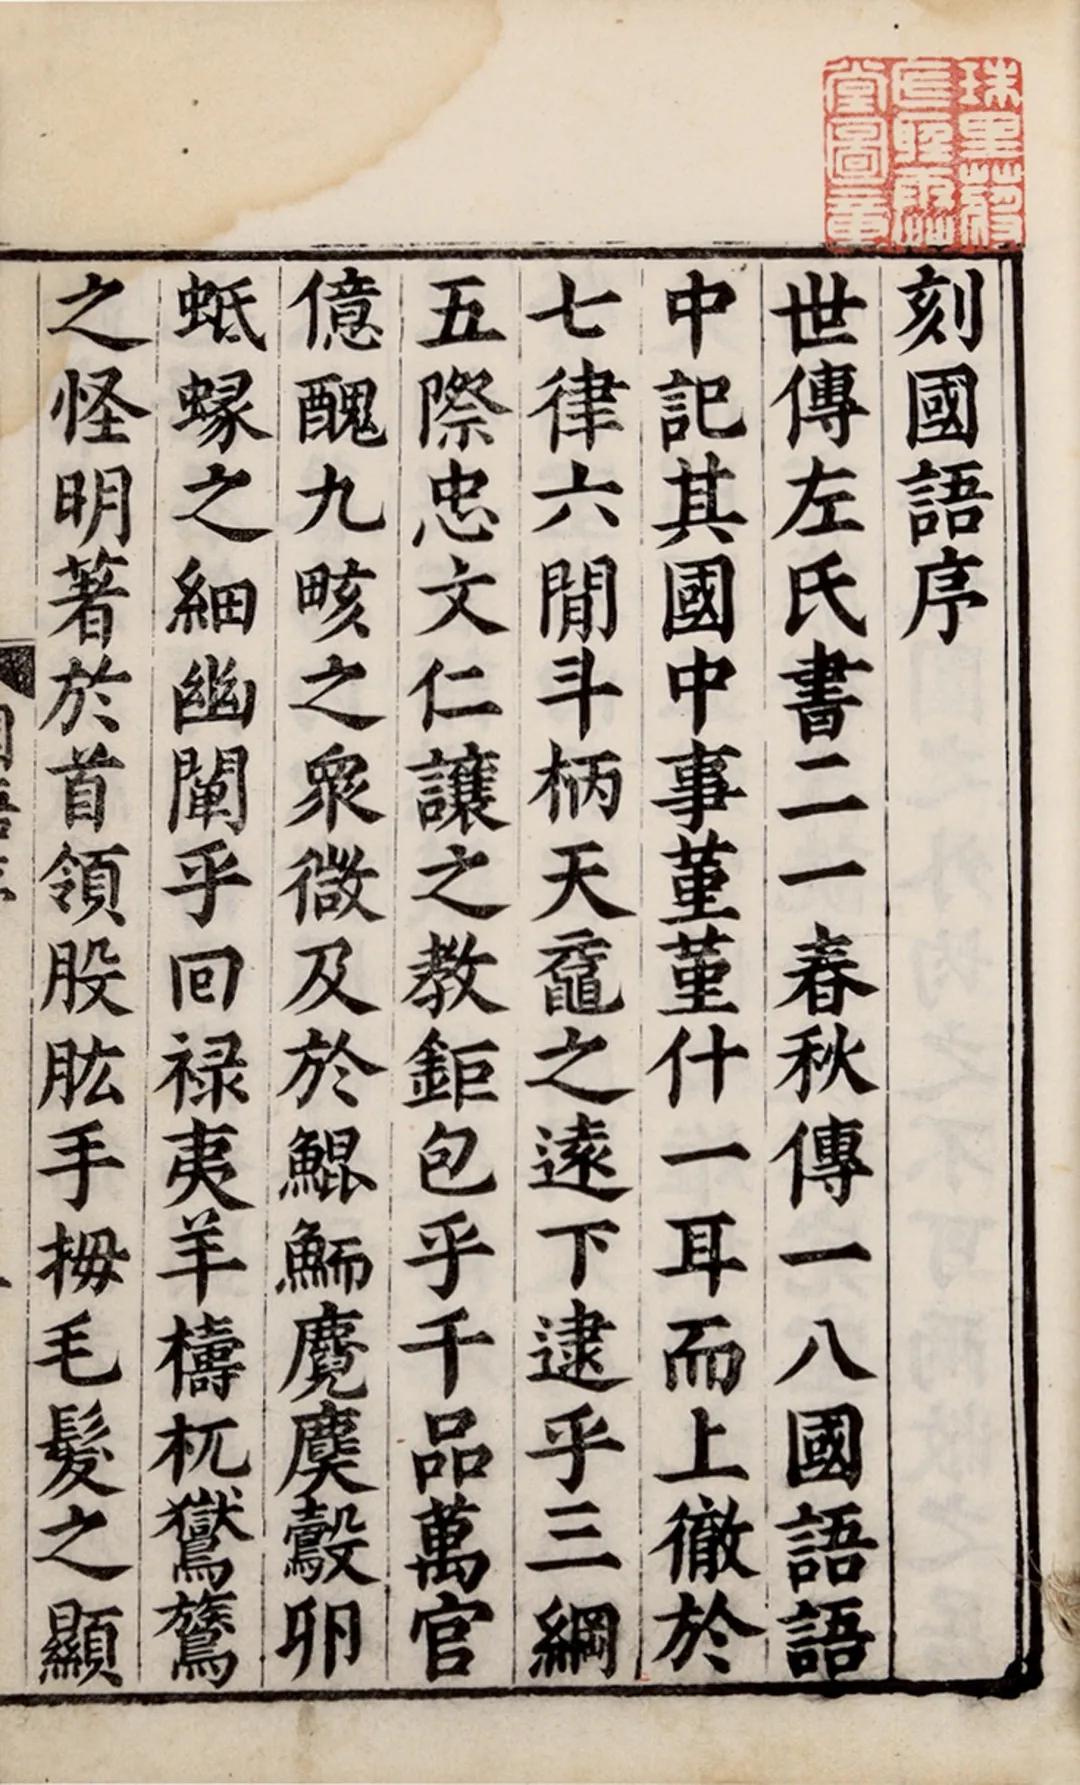 刻國語序
世傳左氏書二一春秋傳一八國語語
中記其國中事菫菫什一耳而上徹於
七律六閒斗柄天黿之遠下逮乎三綱
五際忠文仁讓之教鉅包乎千品萬官
億醜九畡之衆微及於鯤鮞麑䴠鷇卵
蚳蝝之細幽闡乎回禄夷羊檮杌鸑鷟
之怪明著於首領股肱手拇毛髮之顯